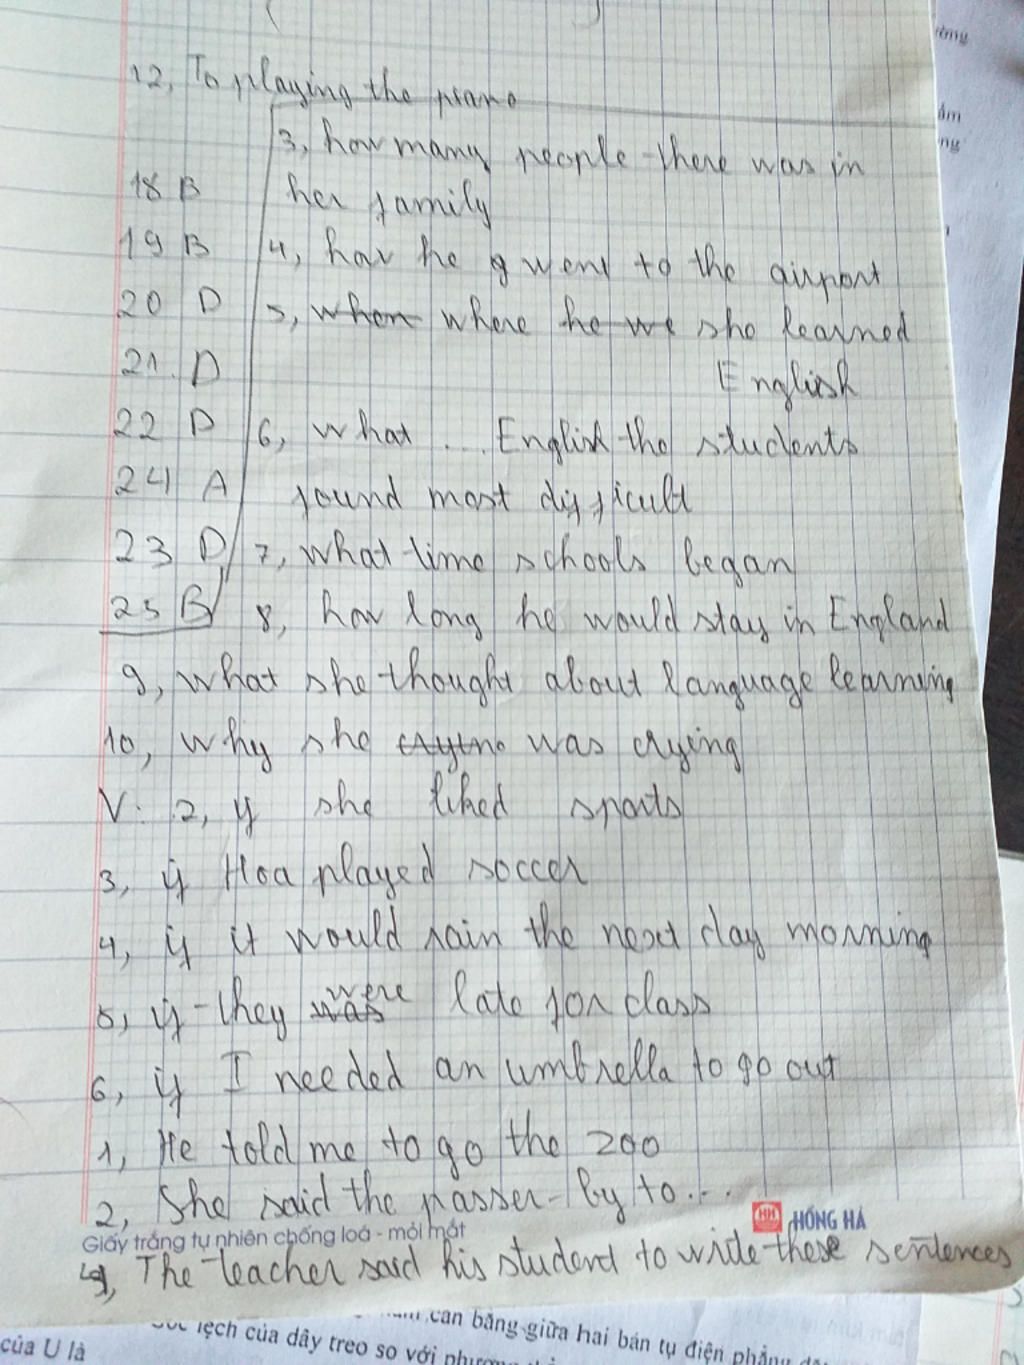 12, To playing the piano
3, how many people there was in
her family
18 B
19 B
20 D
21. D
22 D
24 A
23 D
25 B
4, how he went to the airport
5, when where he we she learned
English
6, what ... English the students
found most difficult
7, what time schools began
8, how long he would stay in England
9, what she thought about language learning
10, why she was crying
V. 2, if she liked sports
3, if Hoa played soccer
4, if it would rain the next day morning
5, if they was were late for class
6, if I needed an umbrella to go out
1, He told me to go the zoo
2, She said the passer-by to...
HH HỒNG HÀ
Giấy trắng tự nhiên chống loá - mỏi mắt
4, The teacher said his student to write these sentences
lệch của dây treo so với
cân bằng giữa hai bản tụ điện phẳng
của U là